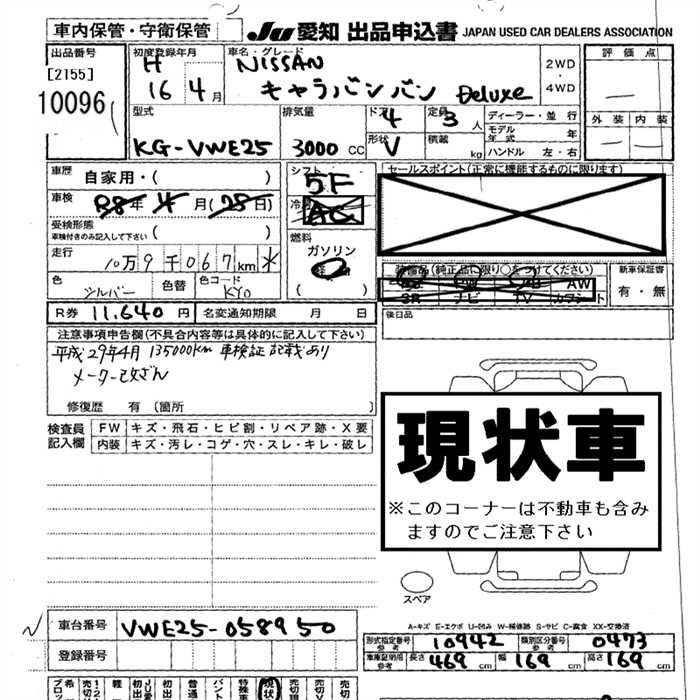 車内保管・守衛保管
JU 愛知 出品申込書 JAPAN USED CAR DEALERS ASSOCIATION
出品番号
[2155]
10096
初度登録年月
H 16 4月
車名・グレード
NISSAN
キャラバンバン Deluxe
2WD
・
4WD
評価点
外装 内装
型式
KG-VWE25
排気量
3000 CC
ドア 4
形状 V
定員 3人
積載 kg
ディーラー・並行
モデル年式 年
ハンドル 左・右
車歴
自家用・( )
車検
R8年 4月(28日)
受検形態
車検付きのみ記入して下さい ( )
走行
10万9千067km
色
シルバー
色替
色コード
KY0
シフト
5F
冷房
AC
燃料
ガソリン
( )
セールスポイント(正常に機能するものに限ります)
装備品(純正品に限り○をつけてください)
SR ナビ TV カワシート
AW
新車保証書
有・無
R券 11,640円
名変通知期限 月 日
後日品
注意事項申告欄(不具合内容等は具体的に記入して下さい)
平成29年4月 135000km 車検証記載あり
メーター改ざん
修復歴 有 〔箇所 〕
検査員記入欄
FW キズ・飛石・ヒビ割・リペア跡・X要
内装 キズ・汚レ・コゲ・穴・スレ・キレ・破レ
現状車
※このコーナーは不動車も含み
ますのでご注意下さい
スペア
A-キズ E-エクボ U-凹み W-補修跡 S-サビ C-腐食 XX-交換済
車台番号 VWE25-058950
登録番号
型式指定番号 参考 10942
類別区分番号 参考 0473
車庫証明用 参考 長さ 469cm 幅 169cm 高さ 169cm